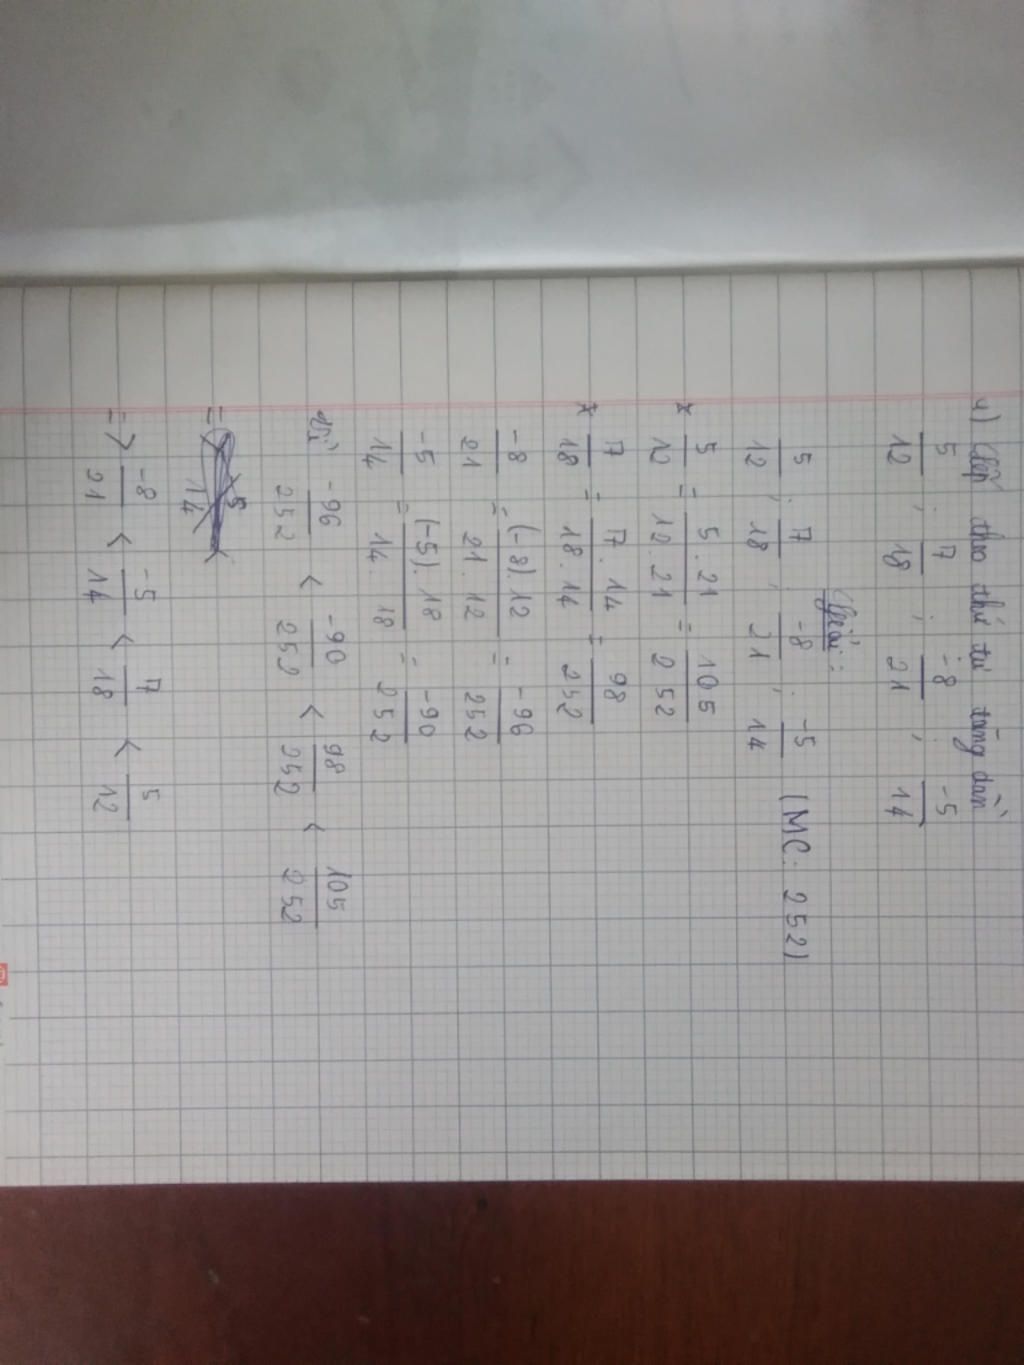 4) Xếp theo thứ tự tăng dần
5/12 ; 7/18 ; -8/21 ; -5/14
Giải:
5/12 ; 7/18 ; -8/21 ; -5/14 (MC: 252)
* 5/12 = 5.21/12.21 = 105/252
* 7/18 = 7.14/18.14 = 98/252
-8/21 = (-8).12/21.12 = -96/252
-5/14 = (-5).18/14.18 = -90/252
Vì -96/252 < -90/252 < 98/252 < 105/252
=> -8/21 < -5/14 < 7/18 < 5/12